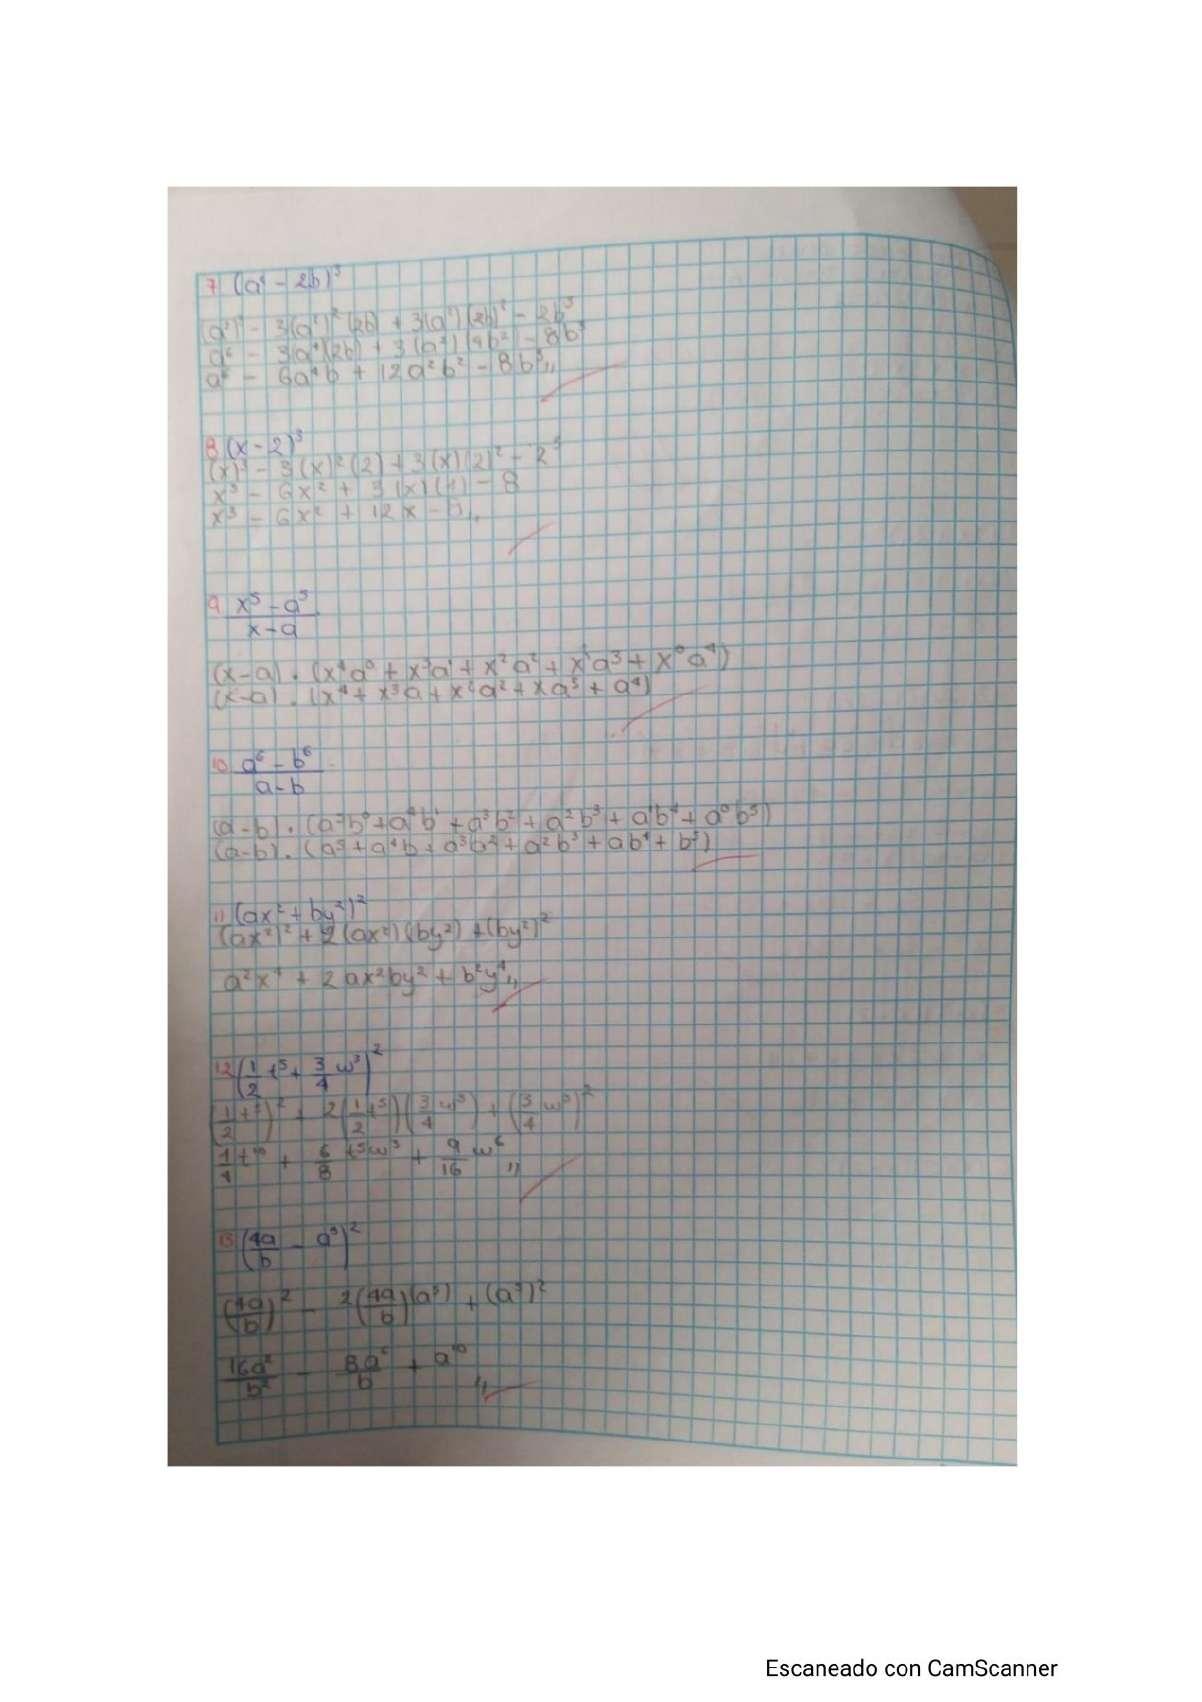 7 (a² - 2b)³
(a²)³ - 3(a²)²(2b) + 3(a²)(2b)² - 2b³
a⁶ - 3(a⁴)(2b) + 3(a²)(4b²) - 8b³
a⁶ - 6a⁴b + 12a²b² - 8b³,,
8 (x - 2)³
(x)³ - 3(x)²(2) + 3(x)(2)² - 2³
x³ - 6x² + 3(x)(4) - 8
x³ - 6x² + 12x - 8,,
9 x⁵ - a⁵
x - a
(x-a) . (x⁴a⁰ + x³a¹ + x²a² + x¹a³ + x⁰a⁴)
(x-a) . (x⁴ + x³a + x²a² + xa³ + a⁴)
10 a⁶ - b⁶
a - b
(a-b) . (a⁵b⁰ + a⁴b¹ + a³b² + a²b³ + a¹b⁴ + a⁰b⁵)
(a-b) . (a⁵ + a⁴b + a³a² + a²b³ + ab⁴ + b⁵)
11 (ax² + by²)²
(ax²)² + 2(ax²)(by²) + (by²)²
a²x⁴ + 2ax²by² + b²y⁴,,
12 (1/2 t⁵ + 3/4 w³)²
(1/2 t⁵)² + 2(1/2 t⁵)(3/4 w³) + (3/4 w³)²
1/4 t¹⁰ + 6/8 t⁵w³ + 9/16 w⁶,,
13 (4a/b - a⁵)²
(4a/b)² - 2(4a/b)(a⁵) + (a⁵)²
16a²/b² - 8a⁶/b + a¹⁰,,
Escaneado con CamScanner